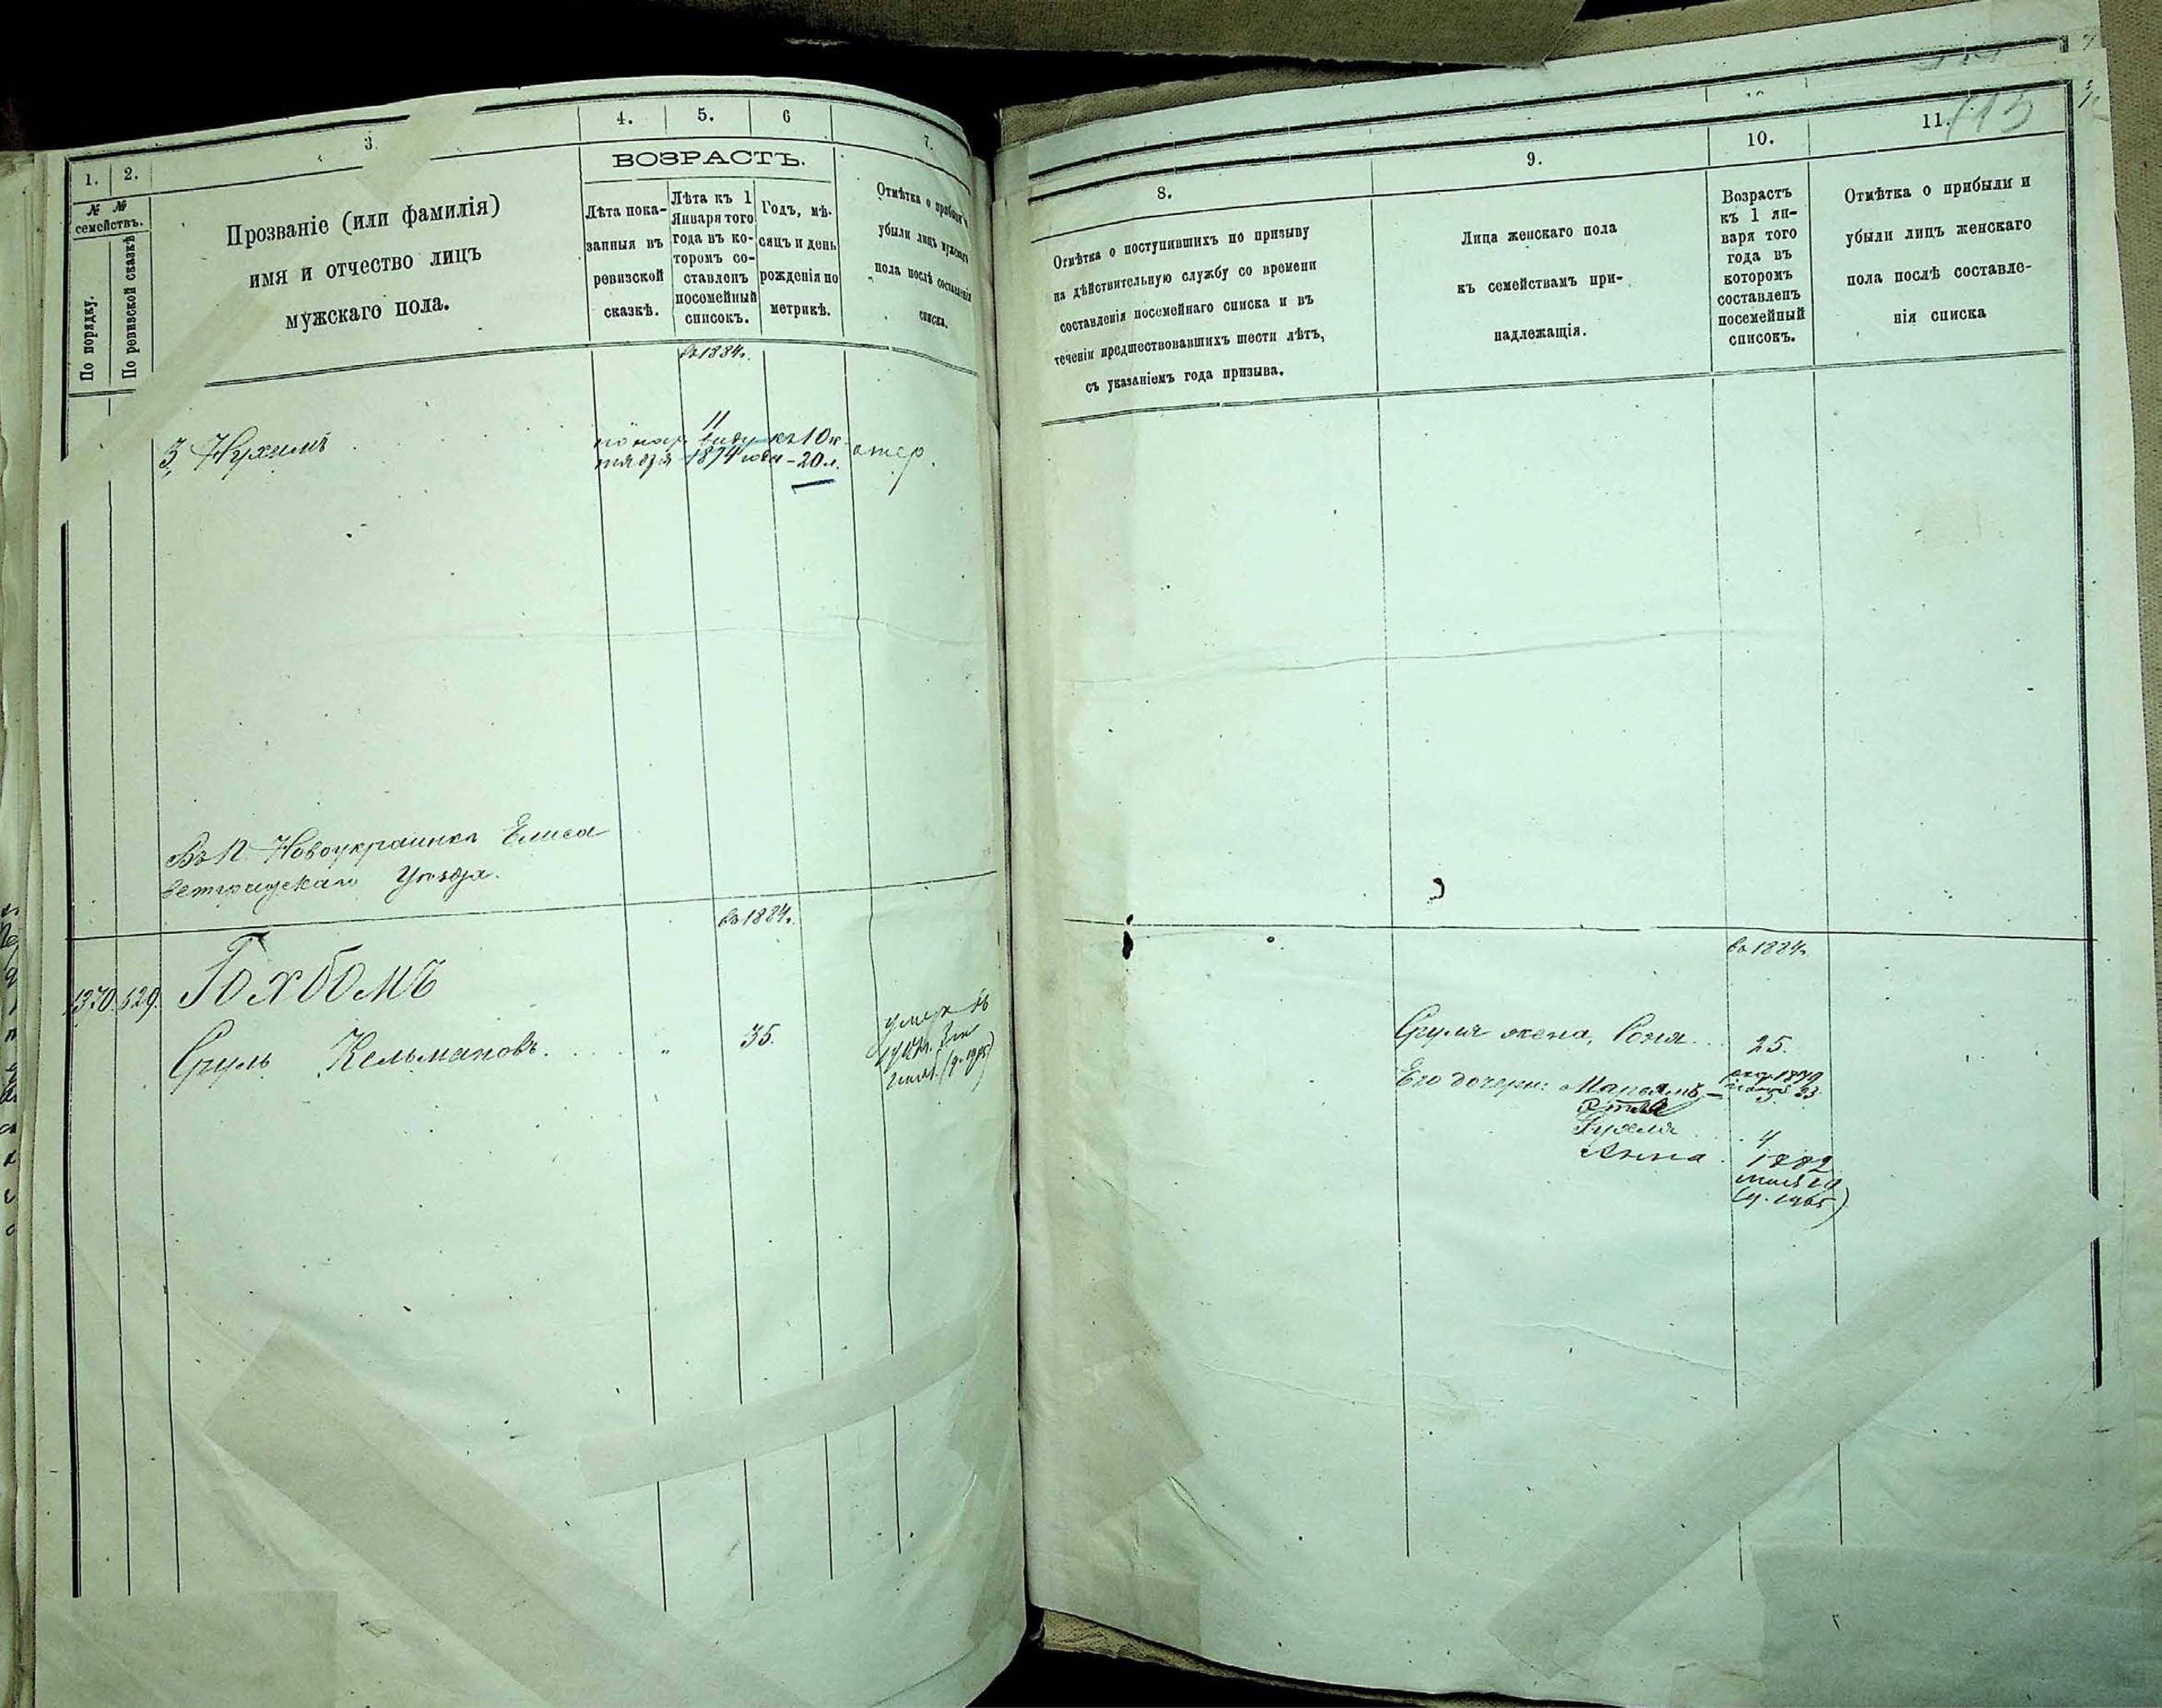 1.
2.
3.
4.
5.
6
7.
№ №
семействъ.
По порядку.
По ревизской сказкѣ
Прозваніе (или фамилія)
имя и отчество лицъ
мужскаго пола.
ВОЗРАСТЪ.
Лѣта пока-
занныя въ
ревизской
сказкѣ.
Лѣта къ 1
Января того
года въ ко-
торомъ со-
ставленъ
посемейный
списокъ.
Годъ, мѣ-
сяцъ и день
рожденія по
метрикѣ.
Отмѣтка о прибыли и
убыли лицъ мужскаго
пола послѣ составленія
списка.
въ 1884г.
3, Нухимъ
11
по нар. виду къ 1 Ок-
тября 1874 года - 20 л.
Въ П. Новоукраинка Елиса
ветградскаго Уѣзда.
въ 1884г.
1370. 529. Гохбомъ
Сруль Кельмановъ. 35.
115
8.
9.
10.
11.
Отмѣтка о поступившихъ по призыву
на дѣйствительную службу со времени
составленія посемейнаго списка и въ
теченіи предшествовавшихъ шести лѣтъ,
съ указаніемъ года призыва.
Лица женскаго пола
къ семействамъ при-
надлежащія.
Возрастъ
къ 1 ян-
варя того
года въ
которомъ
составленъ
посемейный
списокъ.
Отмѣтка о прибыли и
убыли лицъ женскаго
пола послѣ составле-
нія списка
въ 1884г.
Сруля жена, Соня 25.
Его дочери: Марьямъ 5.
Рухля 4
Анна 1882